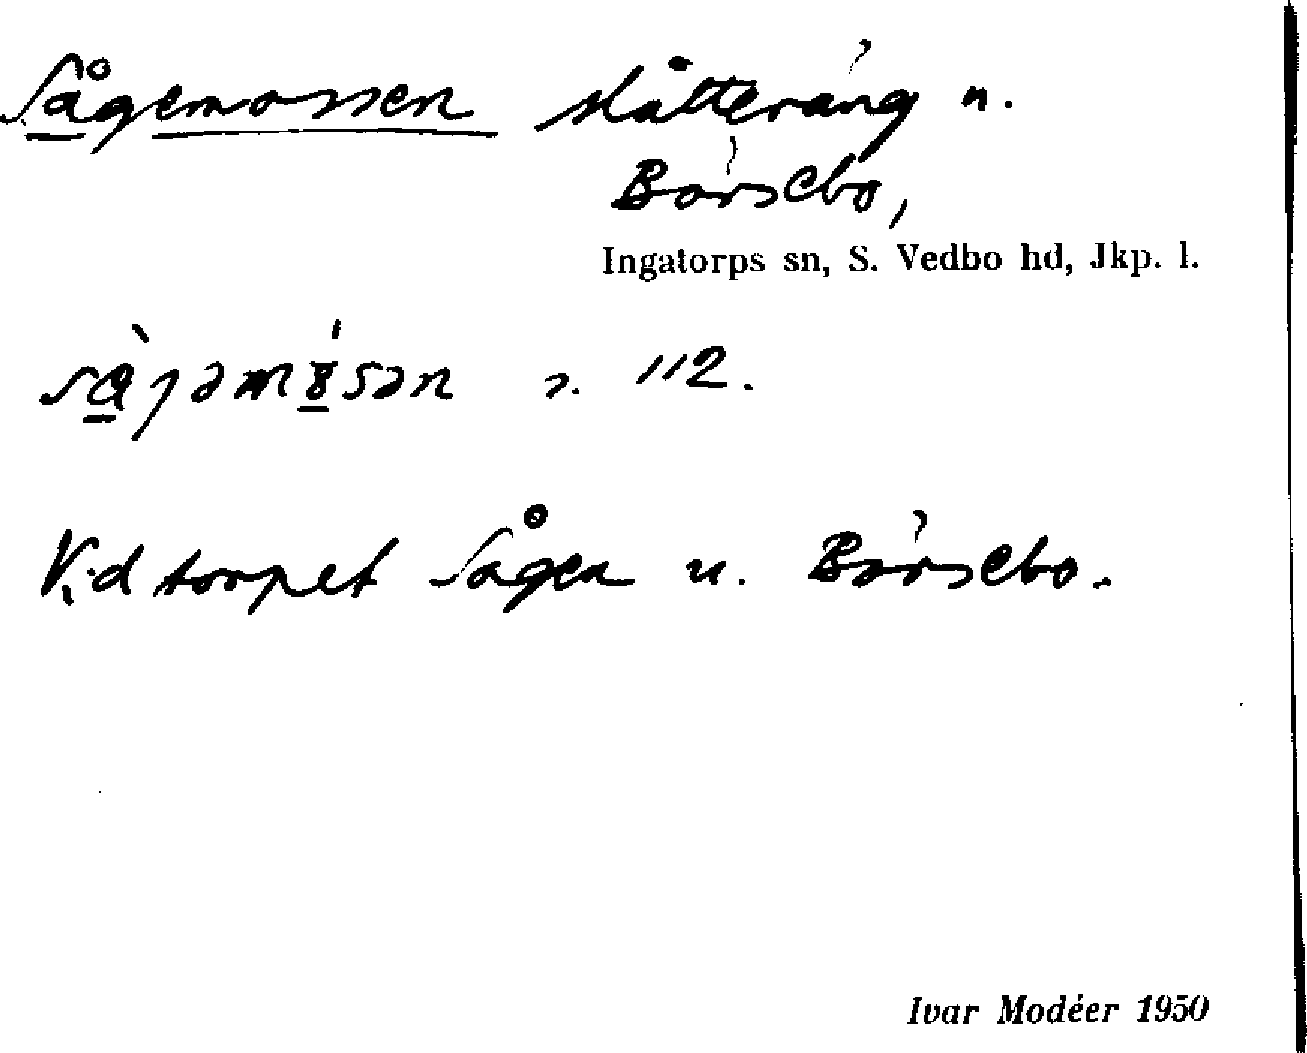 Sågemossen slåtteräng u.
Börsebo,
Ingatorps sn, S. Vedbo hd, Jkp. l.
112.
Vid torpet Sågen u. Börsebo.
Ivar Modéer 1950